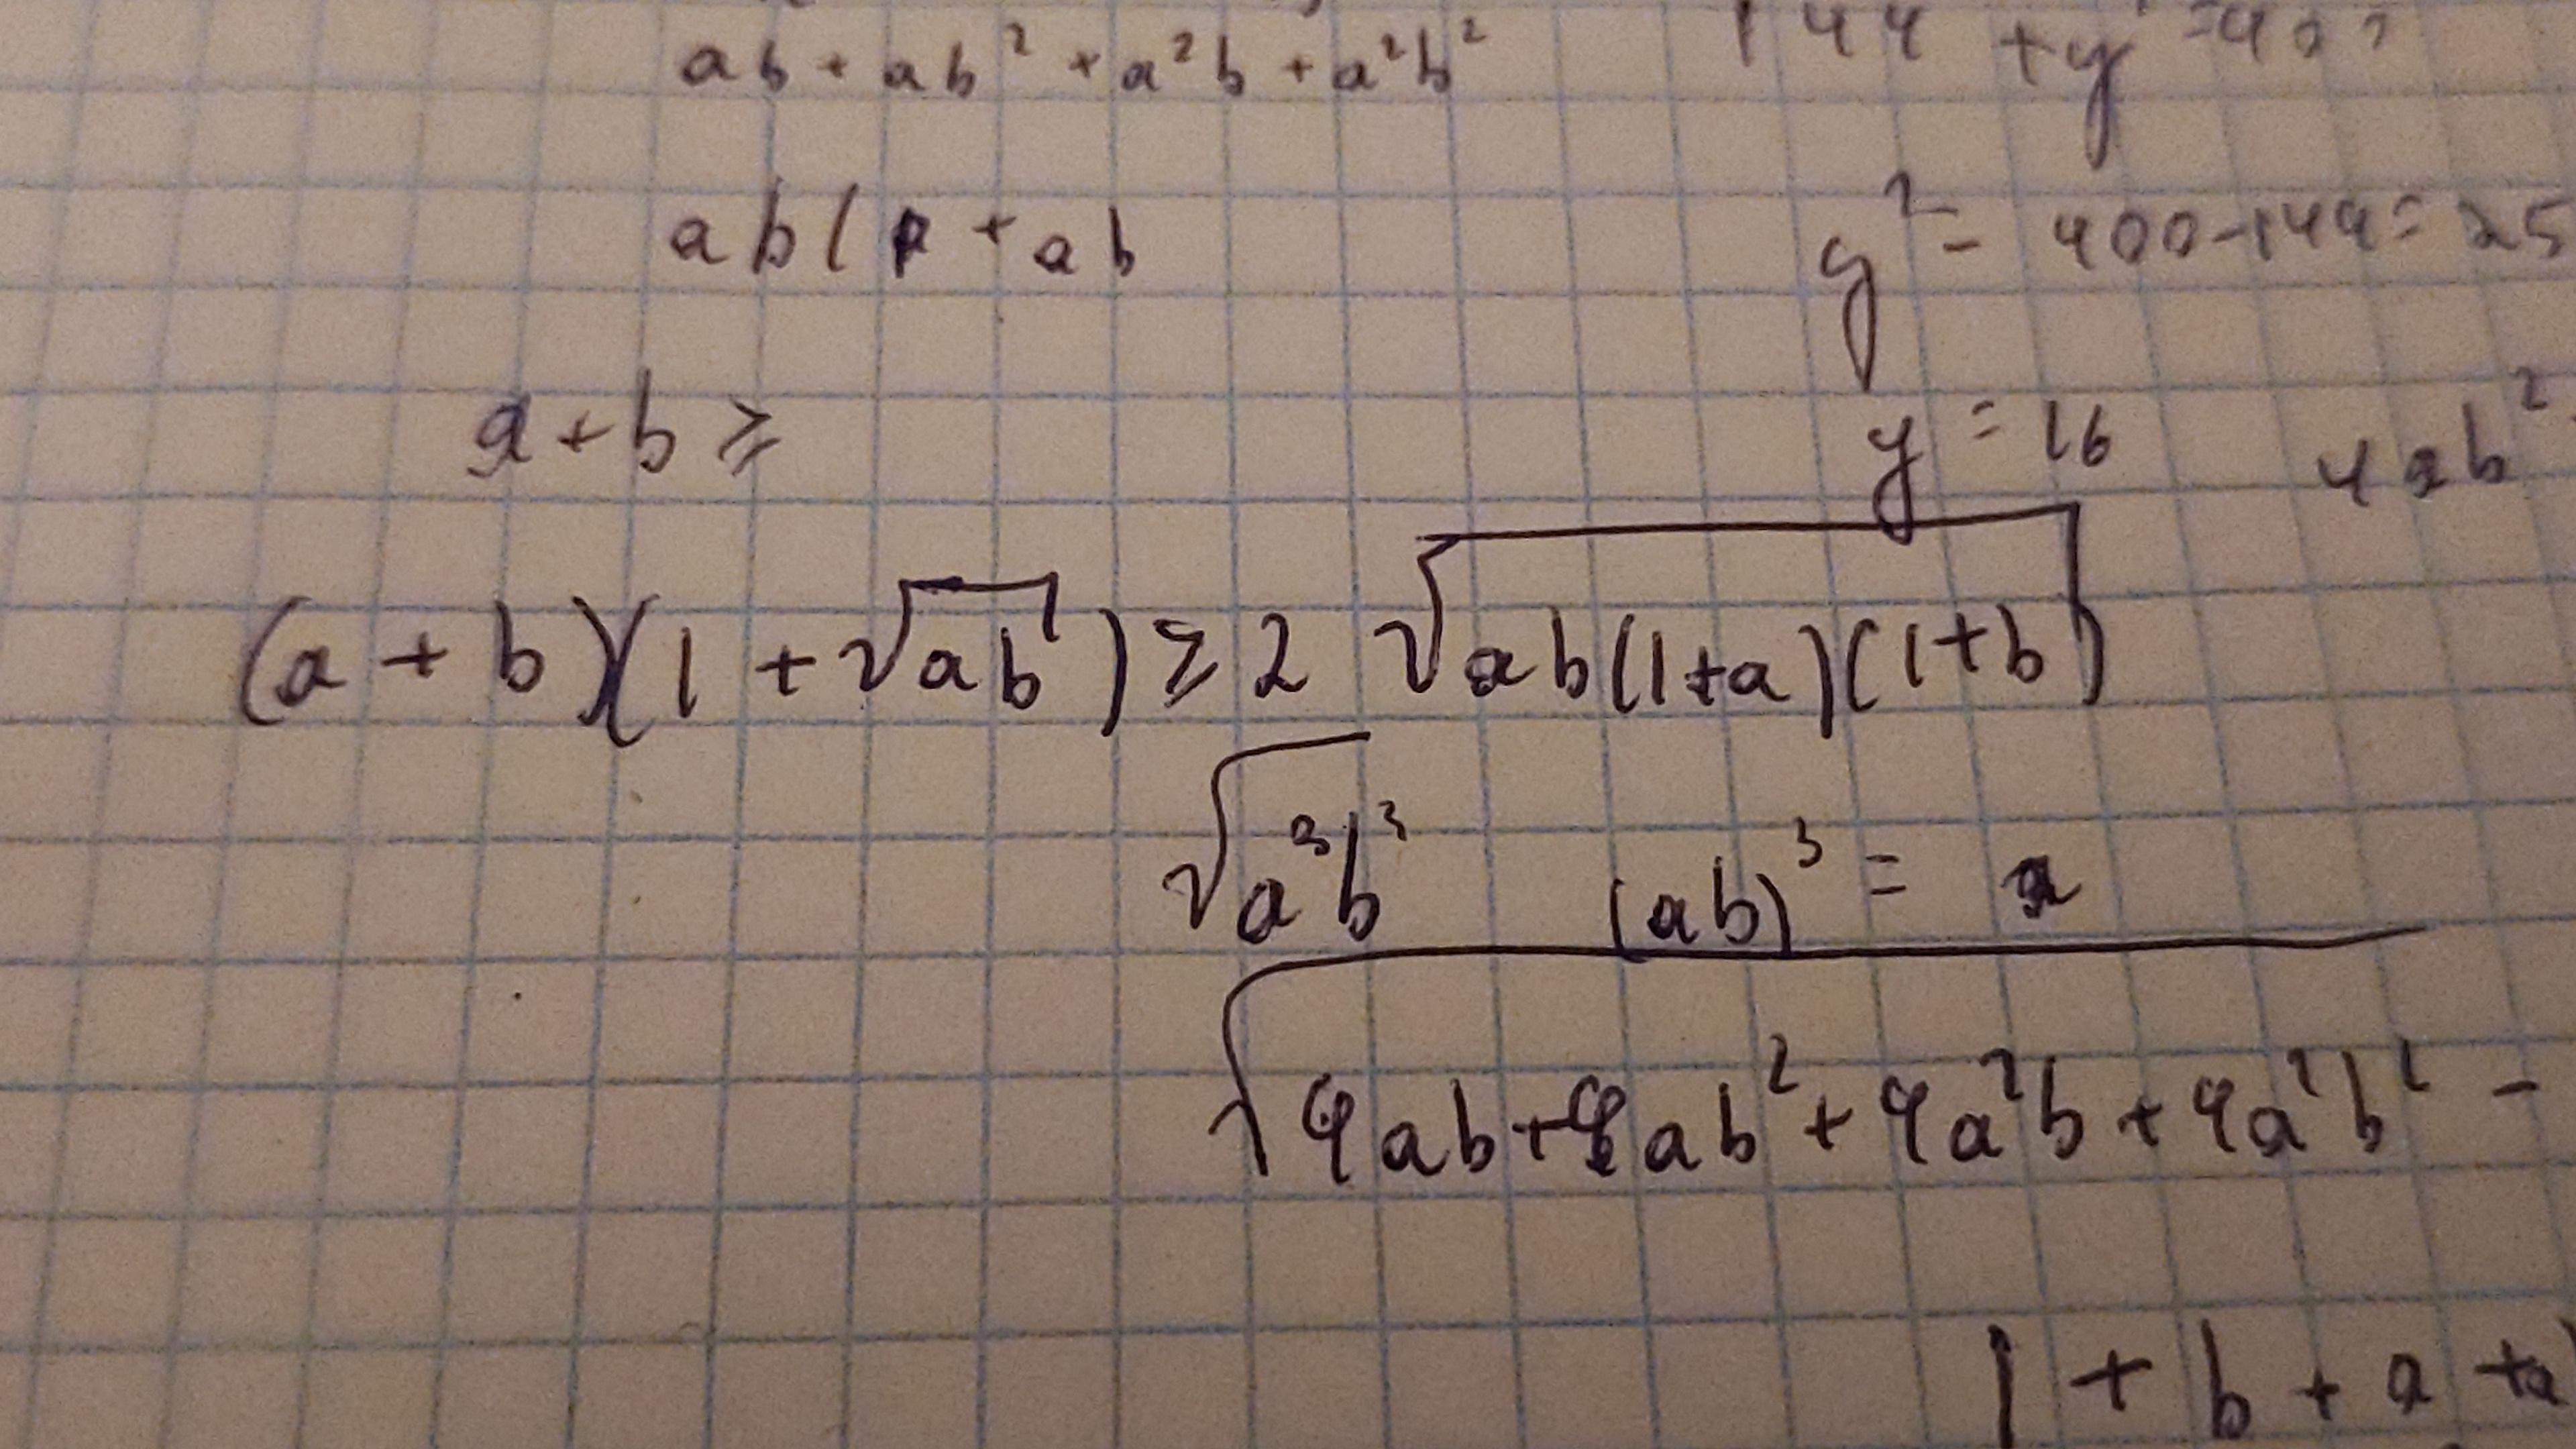 ab + ab² + a²b + a²b²
144 + y
ab( + ab
y² = 400-144= 25
a+b ≥
y = 16
4ab²
(a + b)(1 + √ab) ≥ 2 √ab(1+a)(1+b)
√a³b³ (ab)³ = a
√4ab+4ab²+4a²b+4a²b² -
1 + b + a +a